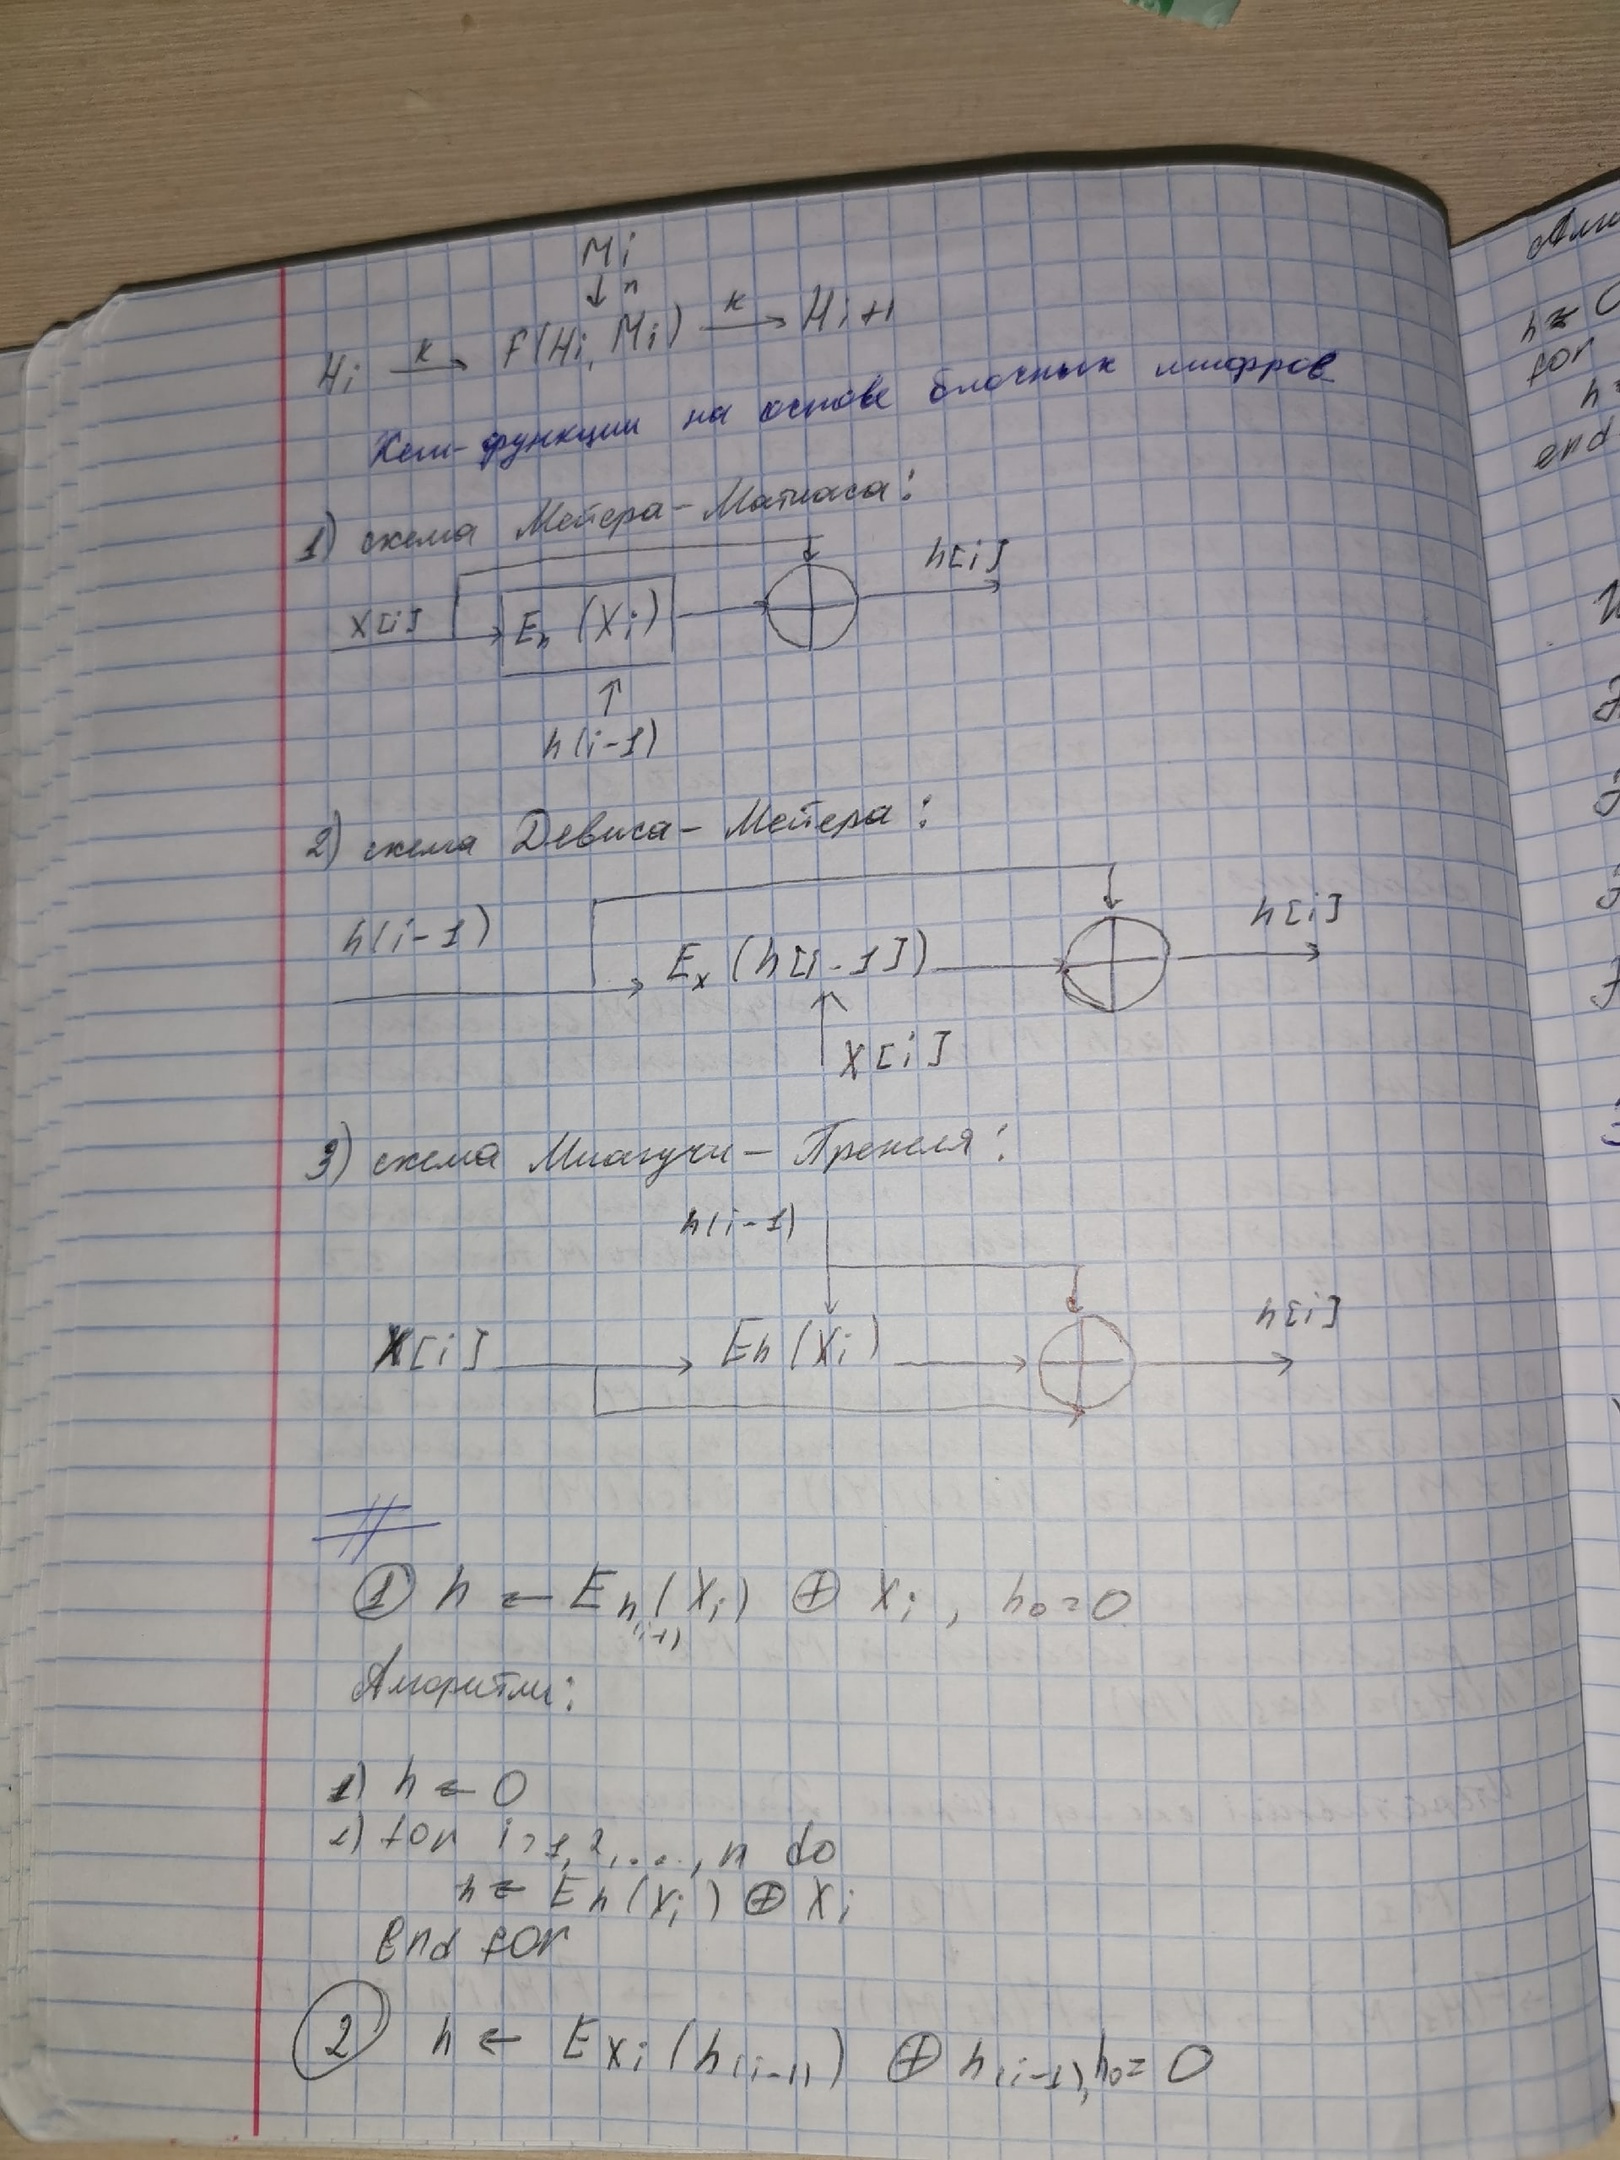 Mi
↓ n
Hi —k→ f(Hi, Mi) —k→ Hi+1
Хеш-функции на основе блочных шифров
1) схема Мейера-Матиаса:
h[i]
X[i] → Eh (Xi) → ⊕ →
↑
h(i-1)
2) схема Девиса-Мейера:
h(i-1) → Ex (h[i-1]) → ⊕ → h[i]
↑ X[i]
3) схема Миагучи-Пренеля:
h(i-1)
X[i] → Eh (Xi) → ⊕ → h[i]
① h ← Eh(i-1) (Xi) ⊕ Xi, h0=0
Алгоритм:
1) h ← 0
2) for i=1,2,...,n do
h ← Eh (Xi) ⊕ Xi
end for
② h ← EXi (h(i-1)) ⊕ h(i-1), h0=0
h ← 0
for
h
end